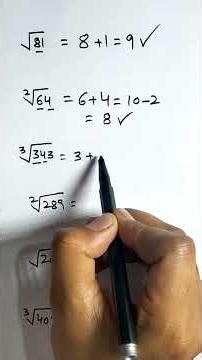 √81 = 8+1 = 9 ✓
²√64 = 6+4 = 10-2
= 8 ✓
³√343 = 3 +
²√289 =
√2
³√40